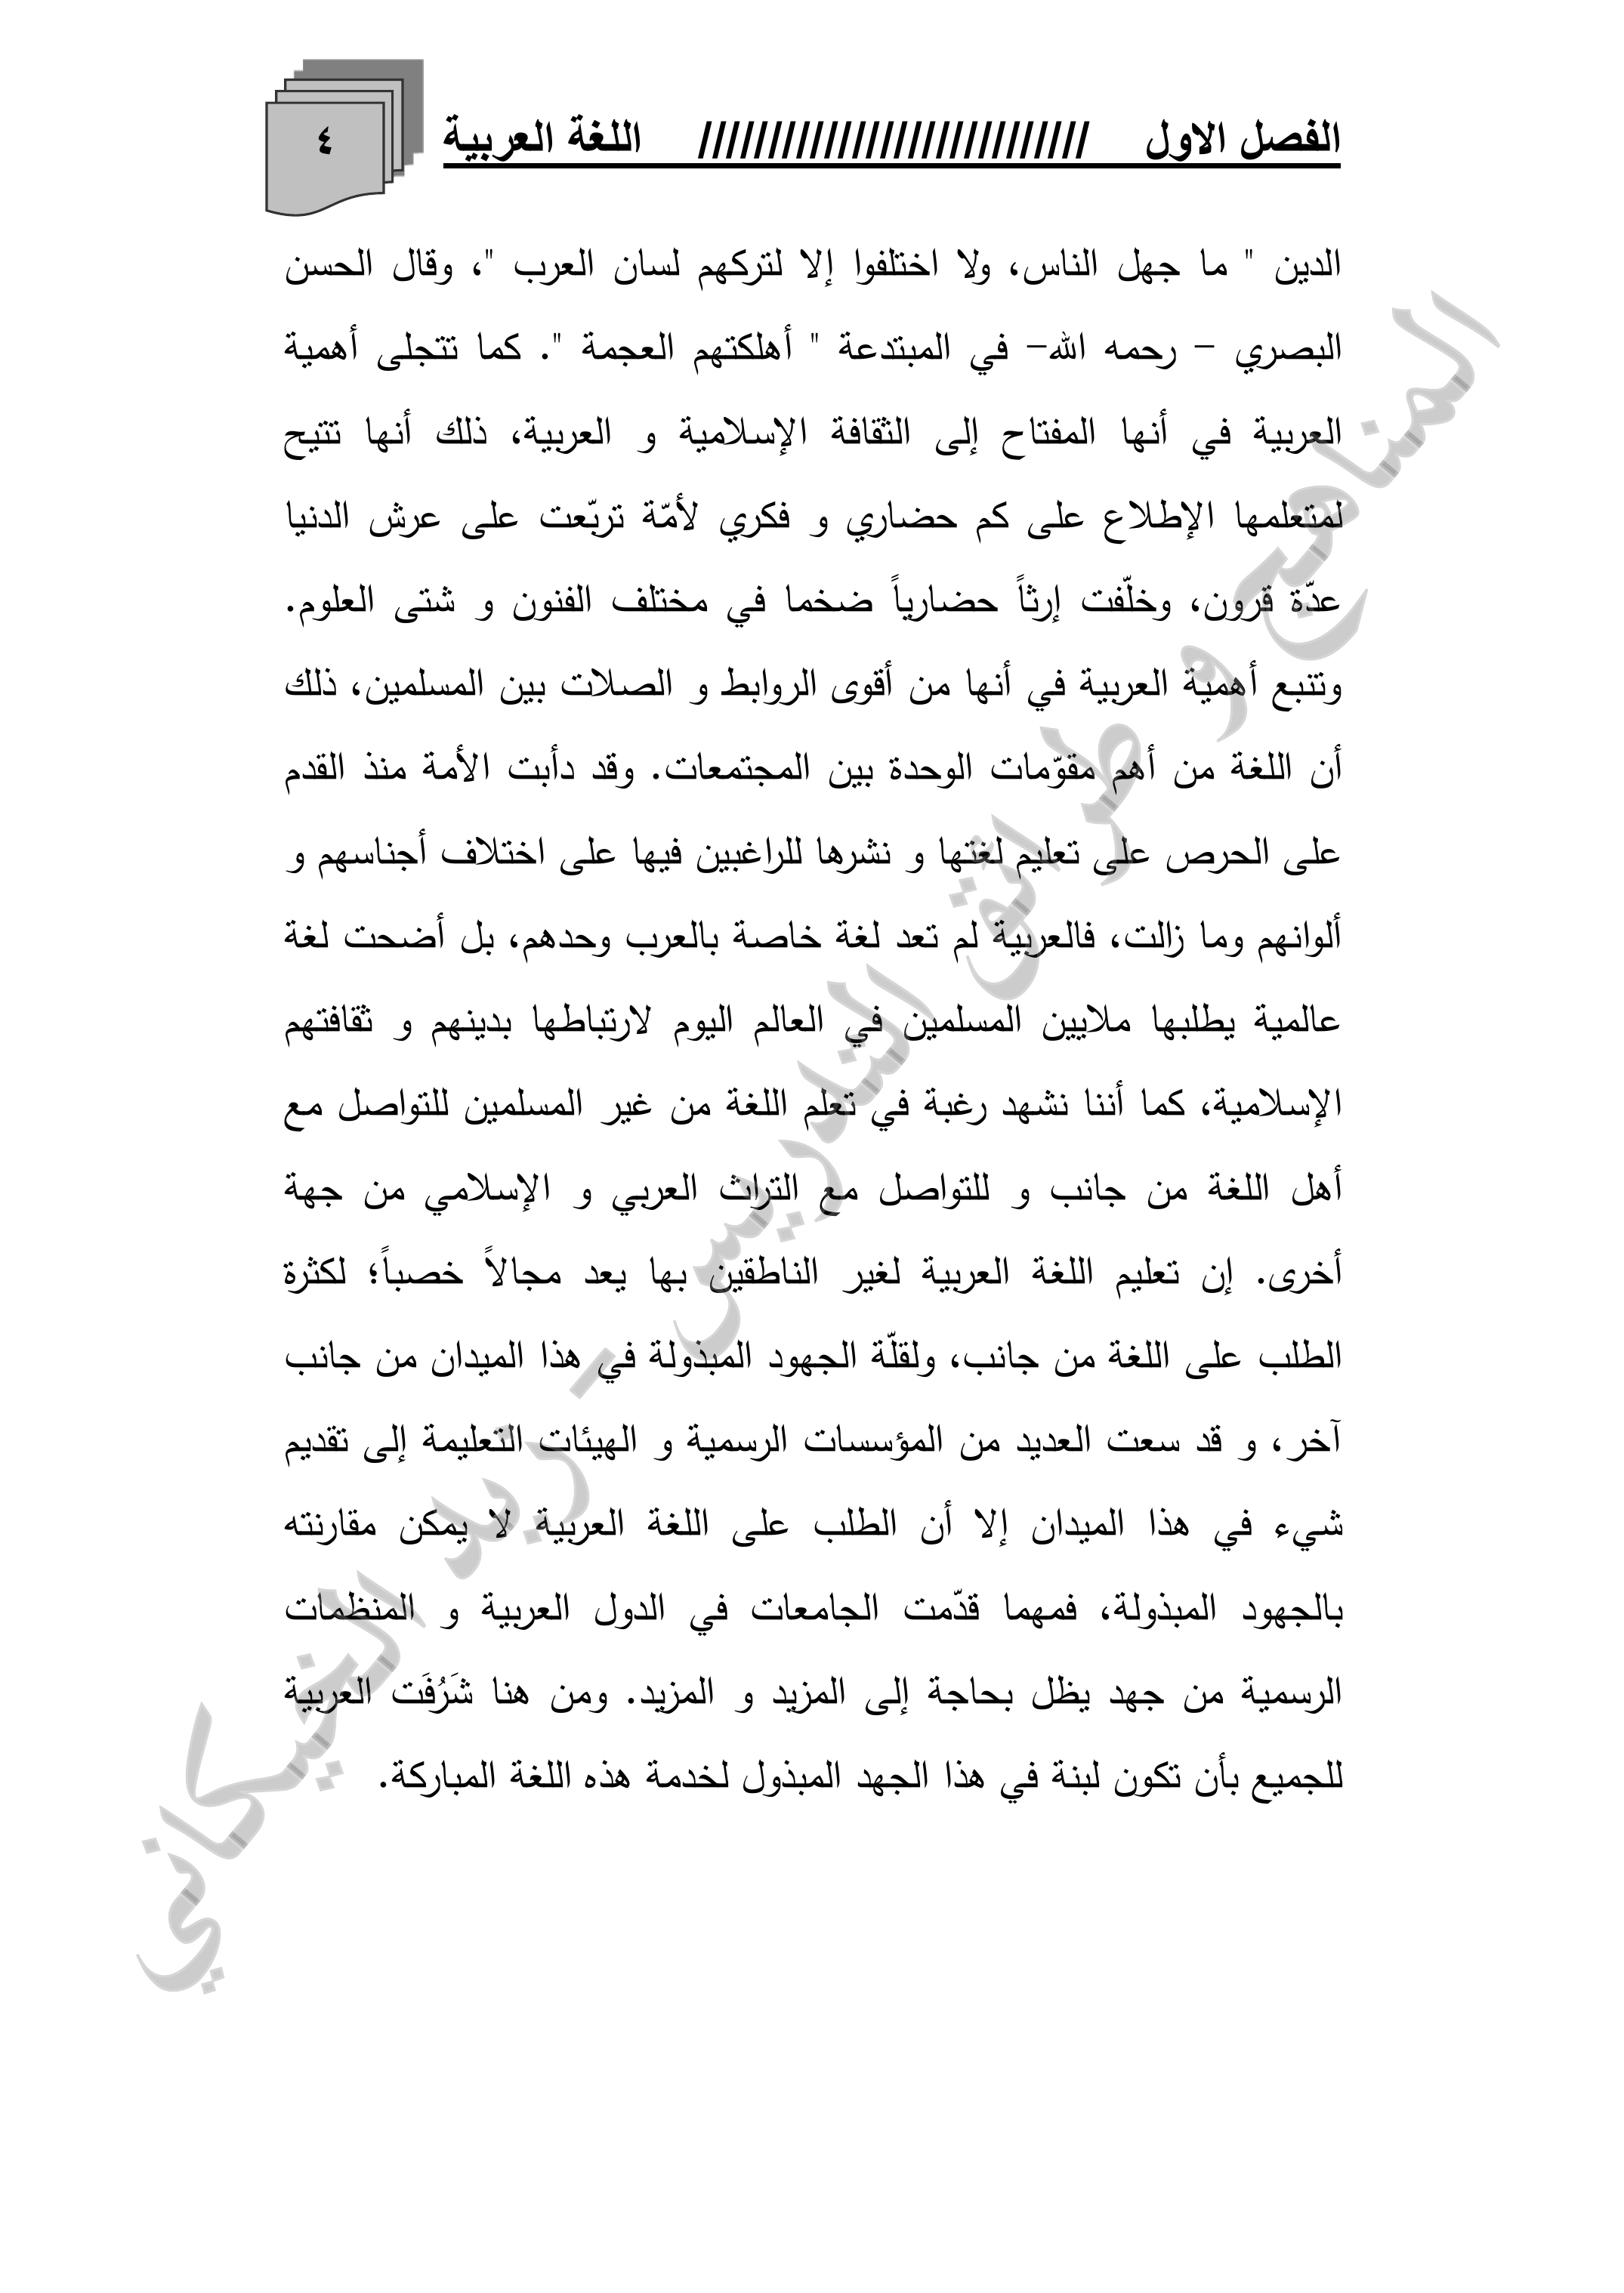 الفصل الاول //////////////////////////// اللغة العربية
٤
الدين " ما جهل الناس، ولا اختلفوا إلا لتركهم لسان العرب "، وقال الحسن
البصري – رحمه الله– في المبتدعة " أهلكتهم العجمة ". كما تتجلى أهمية
العربية في أنها المفتاح إلى الثقافة الإسلامية و العربية، ذلك أنها تتيح
لمتعلمها الإطلاع على كم حضاري و فكري لأمّة تربّعت على عرش الدنيا
عدّة قرون، وخلّفت إرثاً حضارياً ضخما في مختلف الفنون و شتى العلوم.
وتنبع أهمية العربية في أنها من أقوى الروابط و الصلات بين المسلمين، ذلك
أن اللغة من أهم مقوّمات الوحدة بين المجتمعات. وقد دأبت الأمة منذ القدم
على الحرص على تعليم لغتها و نشرها للراغبين فيها على اختلاف أجناسهم و
ألوانهم وما زالت، فالعربية لم تعد لغة خاصة بالعرب وحدهم، بل أضحت لغة
عالمية يطلبها ملايين المسلمين في العالم اليوم لارتباطها بدينهم و ثقافتهم
الإسلامية، كما أننا نشهد رغبة في تعلم اللغة من غير المسلمين للتواصل مع
أهل اللغة من جانب و للتواصل مع التراث العربي و الإسلامي من جهة
أخرى. إن تعليم اللغة العربية لغير الناطقين بها يعد مجالاً خصباً؛ لكثرة
الطلب على اللغة من جانب، ولقلّة الجهود المبذولة في هذا الميدان من جانب
آخر، و قد سعت العديد من المؤسسات الرسمية و الهيئات التعليمة إلى تقديم
شيء في هذا الميدان إلا أن الطلب على اللغة العربية لا يمكن مقارنته
بالجهود المبذولة، فمهما قدّمت الجامعات في الدول العربية و المنظمات
الرسمية من جهد يظل بحاجة إلى المزيد و المزيد. ومن هنا شَرُفَت العربية
للجميع بأن تكون لبنة في هذا الجهد المبذول لخدمة هذه اللغة المباركة.
المناهج و طرائق التدريس - زيد الخيكاني